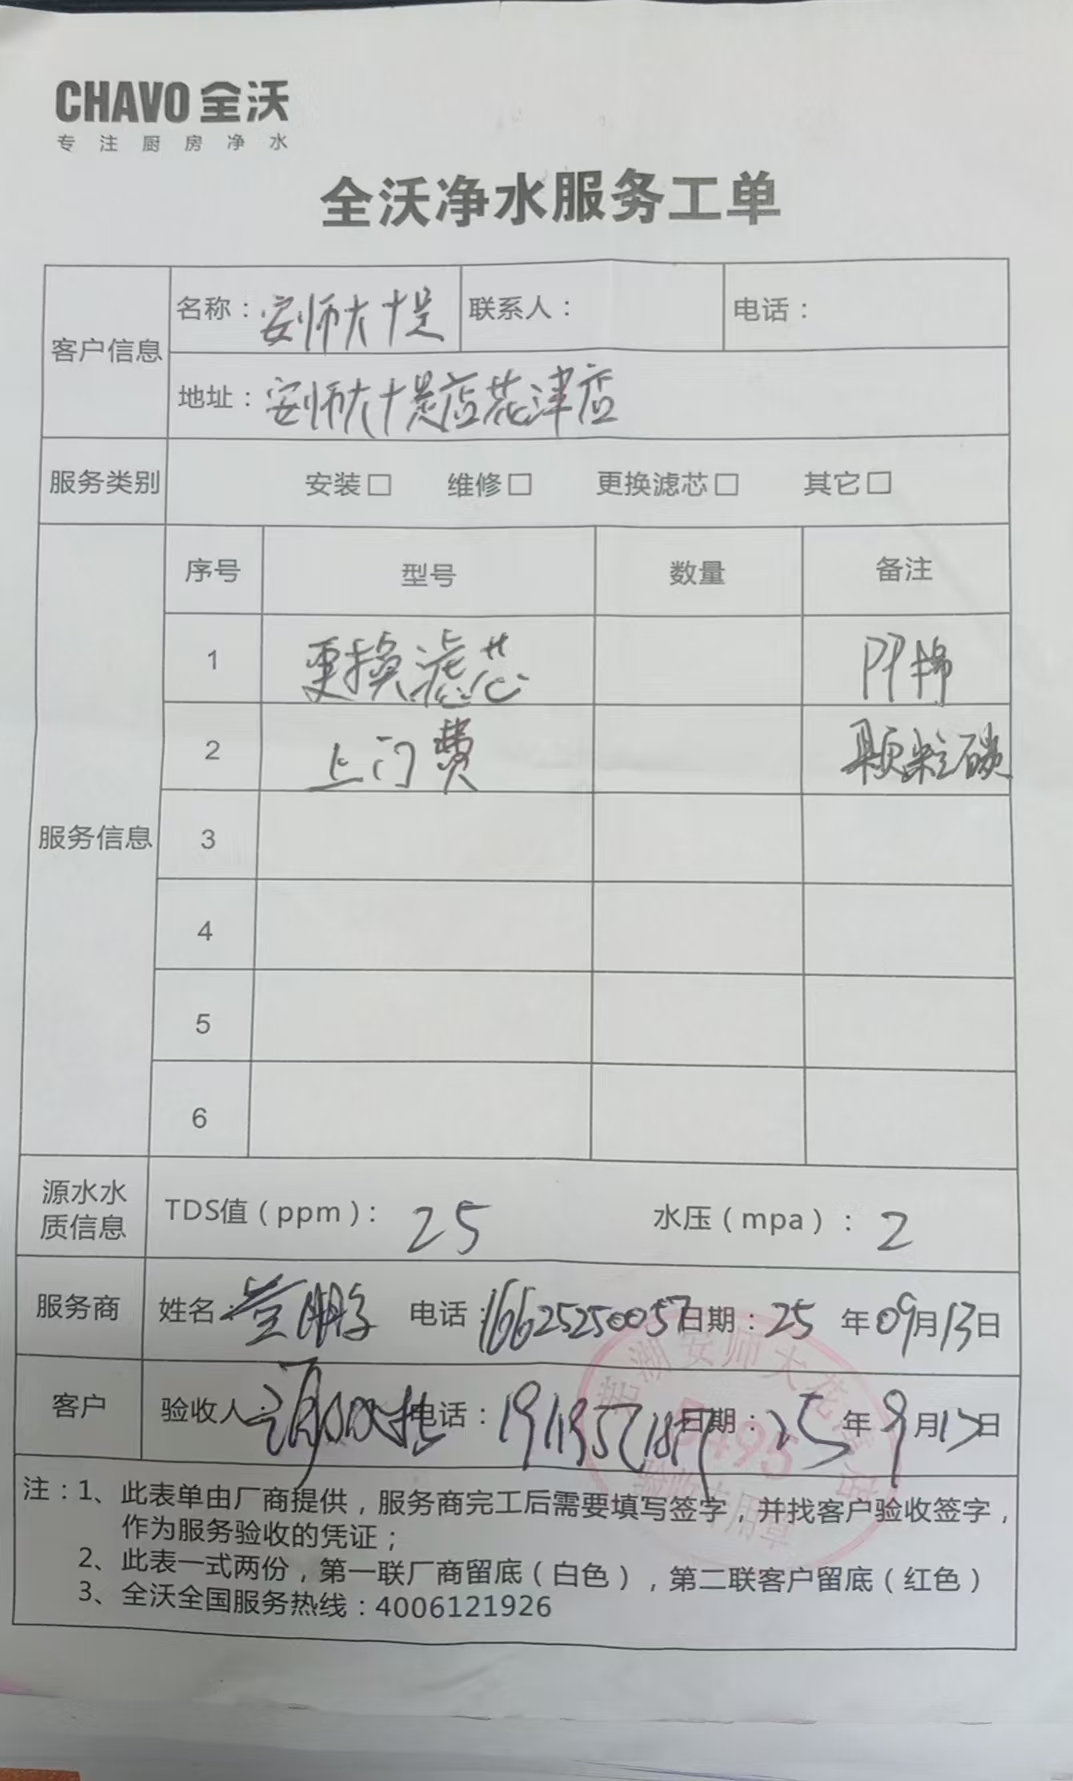 CHAVO 全沃
专注厨房净水
全沃净水服务工单
客户信息 名称：安师大十是 联系人： 电话：
地址：安师大十是店花津店
服务类别 安装□ 维修□ 更换滤芯□ 其它□
服务信息
序号 型号 数量 备注
1 更换滤芯 PP棉
2 上门费 颗粒碳
3
4
5
6
源水水质信息 TDS值（ppm）： 25 水压（mpa）： 2
服务商 姓名： 电话：16625250057 日期：25年09月13日
客户 验收人： 电话： 日期：25年9月13日
芜湖安师大花津店
5+95
验收专用章
注：1、此表单由厂商提供，服务商完工后需要填写签字，并找客户验收签字，
作为服务验收的凭证；
2、此表一式两份，第一联厂商留底（白色），第二联客户留底（红色）
3、全沃全国服务热线：4006121926